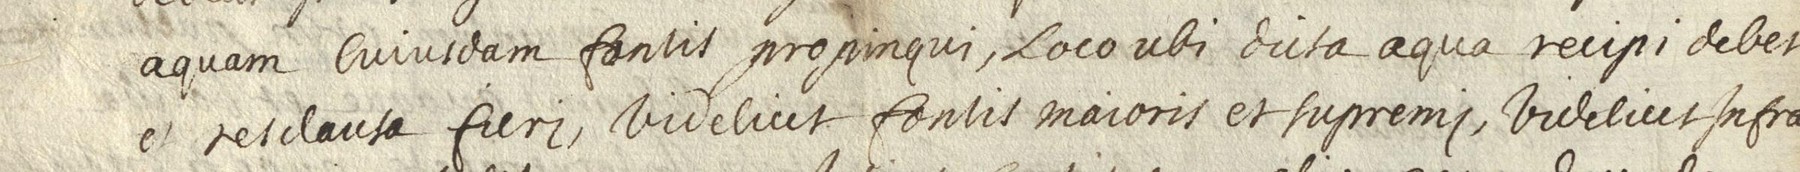 aquam cuiusdam fontis propinqui, Loco ubi dicta aqua recipi debet
et resclausa fieri, videlicet fontis maioris et supremi, videlicet Infra